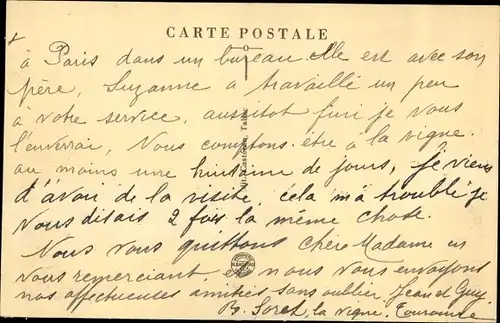 CARTE POSTALE
à Paris dans un bureau. elle est avec son
père, Suzanne a travaillé un peu
à votre service, aussitot fini je vous
l'enverrai, Nous comptons être à la vigne
au moins une huitaine de jours, je viens
d'avoir de la visite, cela m'a troublé je
vous disais 2 fois la même chose.
Nous vous quittons chère Madame en
vous remerciant, et nous vous envoyons
nos affectueuses amitiés sans oublier Jean et Guy
B. Soret la vigne. Touraine